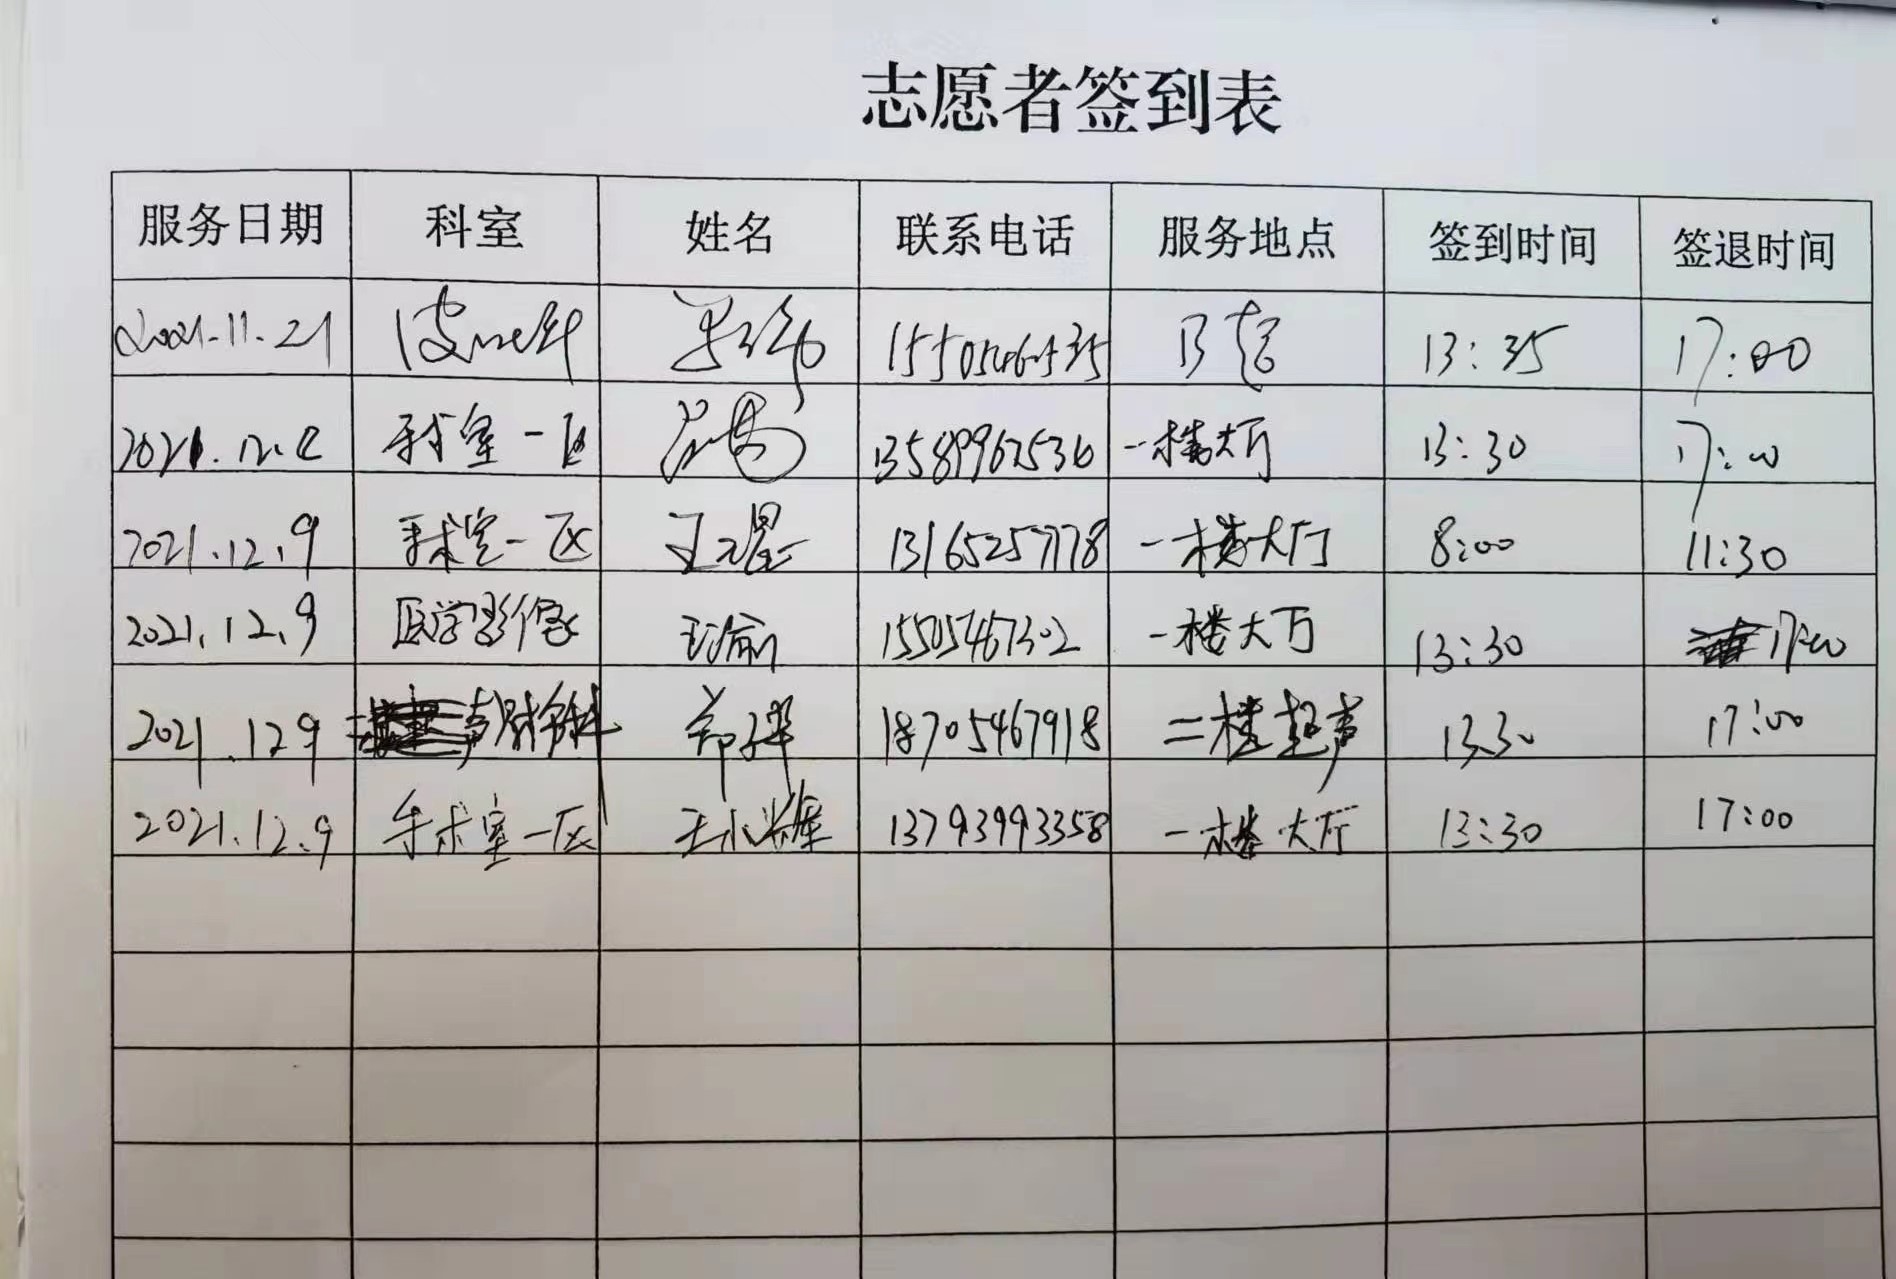 志愿者签到表
服务日期 科室 姓名 联系电话 服务地点 签到时间 签退时间
2021.11.21 皮肤科 13:35 17:00
2021.12.2 手术室一区 13589967536 一楼大厅 13:30 17:00
2021.12.9 手术室一区 13165257178 一楼大厅 8:00 11:30
2021.12.9 医学影像 15505467302 一楼大厅 13:30 17:00
2021.12 9 18705467918 二楼超声 13.30 17:00
2021.12.9 手术室一区 13793993358 一楼大厅 13:30 17:00